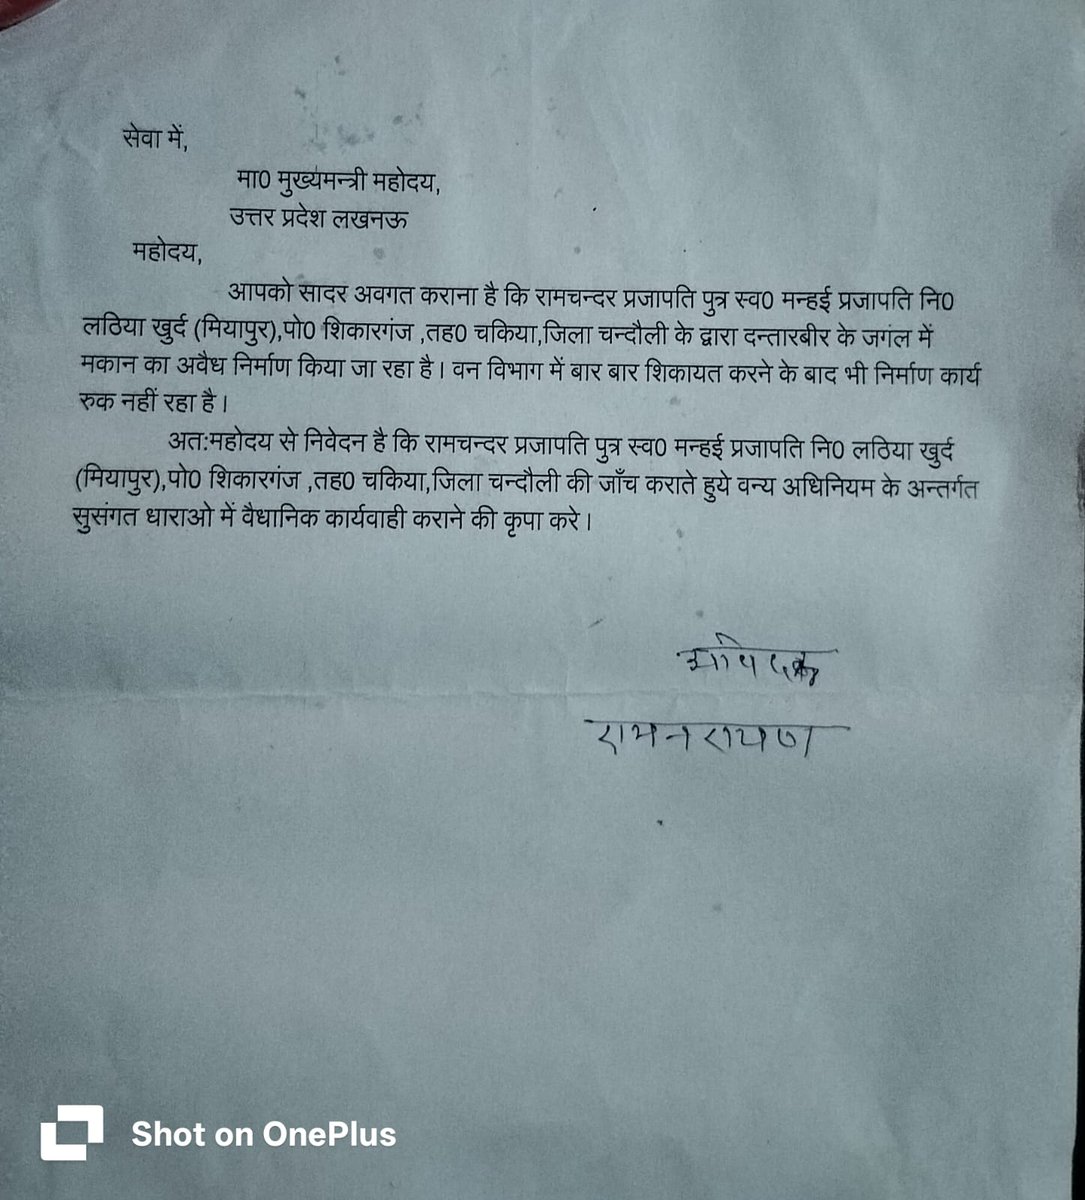 सेवा में,
मा0 मुख्यमन्त्री महोदय,
उत्तर प्रदेश लखनऊ
महोदय,
आपको सादर अवगत कराना है कि रामचन्दर प्रजापति पुत्र स्व0 मन्हई प्रजापति नि0
लठिया खुर्द (मियापुर),पो0 शिकारगंज ,तह0 चकिया,जिला चन्दौली के द्वारा दन्तारबीर के जगंल में
मकान का अवैध निर्माण किया जा रहा है। वन विभाग में बार बार शिकायत करने के बाद भी निर्माण कार्य
रुक नहीं रहा है।
अत:महोदय से निवेदन है कि रामचन्दर प्रजापति पुत्र स्व0 मन्हई प्रजापति नि0 लठिया खुर्द
(मियापुर),पो0 शिकारगंज ,तह0 चकिया,जिला चन्दौली की जाँच कराते हुये वन्य अधिनियम के अन्तर्गत
सुसंगत धाराओ में वैधानिक कार्यवाही कराने की कृपा करे।
रामनरायण
Shot on OnePlus